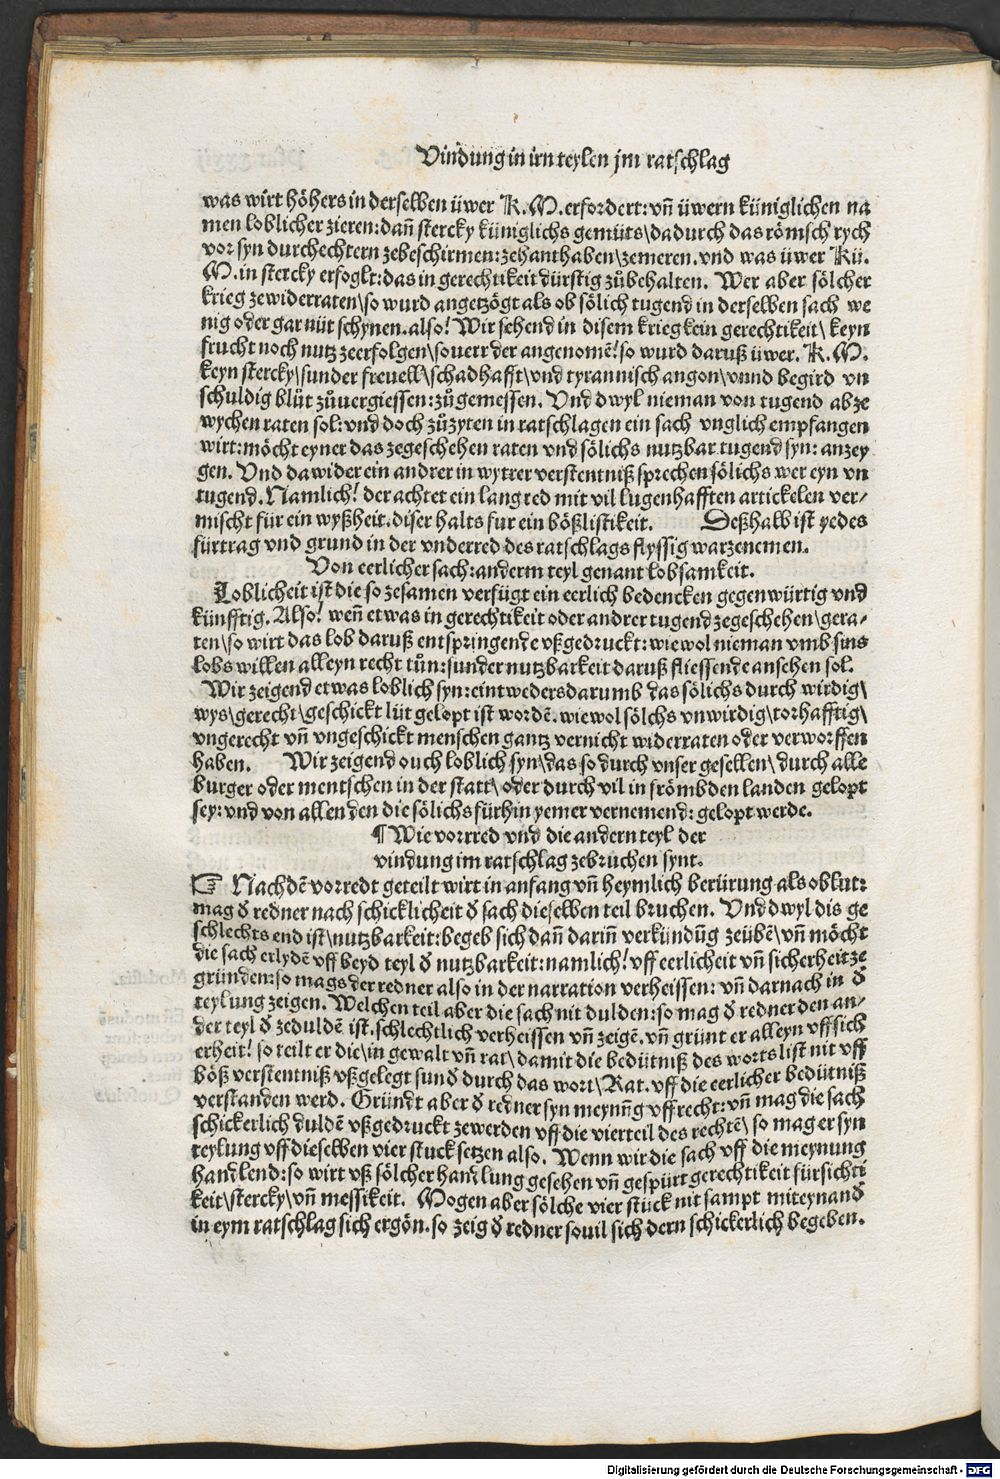 Vindung in irn teylen jm ratschlag
was wirt höhers in derselben üwer K. M. erfordert: vn̄ üwern küniglichen na
men loblicher zieren: dañ stercky küniglichs gemüts\ dadurch das römsch rych
vor syn durchechtern zebeschirmen: zehanthaben\ zemeren. vnd was üwer Kü.
M. in stercky erfoglt: das in gerechtikeit dürstig zůbehalten. Wer aber sölcher
krieg zewiderraten\ so wurd angetzögt als ob sölich tugend in derselben sach we
nig oder gar nüt schynen. also! Wir sehend in disem krieg kein gerechtikeit\ keyn
frucht noch nutz zeerfolgen\ so uerr der angenomē! so wurd daruß üwer. K. M.
keyn stercky\ sunder freuell\ schadhafft\ vnd tyrannisch angon\ vnnd begird vn
schuldig blůt zůuergiessen: zůgemessen. Vnd dwyl nieman von tugend abze
wychen raten sol: vnd doch zůzyten in ratschlagen ein sach vnglich empfangen
wirt: möcht eyner das zegeschehen raten vnd sölichs nutzbar tugend syn: anzey
gen. Vnd dawider ein andrer in wytrer verstentniß sprechen sölichs wer eyn vn
tugend. Namlich! der achtet ein lang red mit vil lugenhafften artickelen ver⸗
mischt für ein wyßheit. diser halts fur ein bößlistikeit. Deßhalb ist yedes
fürtrag vnd grund in der vnderred des ratschlags flyssig warzenemen.
Von eerlicher sach: anderm teyl genant lobsamkeit.
Loblicheit ist die so zesamen verfügt ein eerlich bedencken gegenwürtig vnd
künfftig. Also! wen̄ etwas in gerechtikeit oder andrer tugend zegeschehen\ gera⸗
ten\ so wirt das lob daruß entspringende vßgedruckt: wiewol nieman vmb sins
lobs willen alleyn recht tůn: sunder nutzbarkeit daruß fliessende ansehen sol.
Wir zeigend etwas loblich syn: eintweders darumb das sölichs durch wirdig\
wys\ gerecht\ geschickt lüt gelopt ist wordē. wiewol sölchs vnwirdig\ torhafftig\
vngerecht vn̄ vngeschickt menschen gantz vernicht widerraten oder verworffen
haben. Wir zeigend ouch loblich syn\ das so durch vnser gesellen\ durch alle
burger oder mentschen in der statt\ oder durch vil in frömbden landen gelopt
sey: vnd von allen den die sölichs fürhin yemer vernemend: gelopt werde.
¶ Wie vorrred vnd die andern teyl der
vindung im ratschlag zebruchen synt.
☞ Nachdē vorredt geteilt wirt in anfang vn̄ heymlich berürung als oblut:
mag đ redner nach schicklicheit đ sach dieselben teil bruchen. Vnd dwyl dis ge
schlechts end ist\ nutzbarkeit: begeb sich dan̄ darin̄ verkündūg zeübē\ vn̄ möcht
die sach erlydē vff beyd teyl đ nutzbarkeit: namlich! vff eerlicheit vn̄ sicherheit ze
gründen: so mags der redner also in der narration verheissen: vn̄ darnach in đ
teylung zeigen. Welchen teil aber die sach nit dulden: so mag đ redner den an⸗
der teyl đ zeduldē ist. schlechtlich verheissen vn̄ zeigē. vn̄ grünt er alleyn vff sich
erheit! so teilt er die\ in gewalt vn̄ rat\ damit die bedütniß des worts list nit vff
böß verstentniß vßgelegt sunđ durch das wort\ Rat. vff die eerlicher bedütniß
verstanden werd. Gründt aber đ redner syn meynn̄g vff recht: vn̄ mag die sach
schickerlich duldē vßgedruckt zewerden vff die vierteil des rechtē\ so mag er syn
teylung vff dieselben vier stuck setzen also. Wenn wir die sach vff die meynung
handlend: so wirt vß sölcher handlung gesehen vn̄ gespürt gerechtikeit fürsichti
keit\ stercky\ vn̄ messikeit. Mogen aber sölche vier stück nit sampt miteynanđ
in eym ratschlag sich ergön. so zeig đ redner souil sich dern schickerlich begeben.
Digitalisierung gefördert durch die Deutsche Forschungsgemeinschaft - DFG